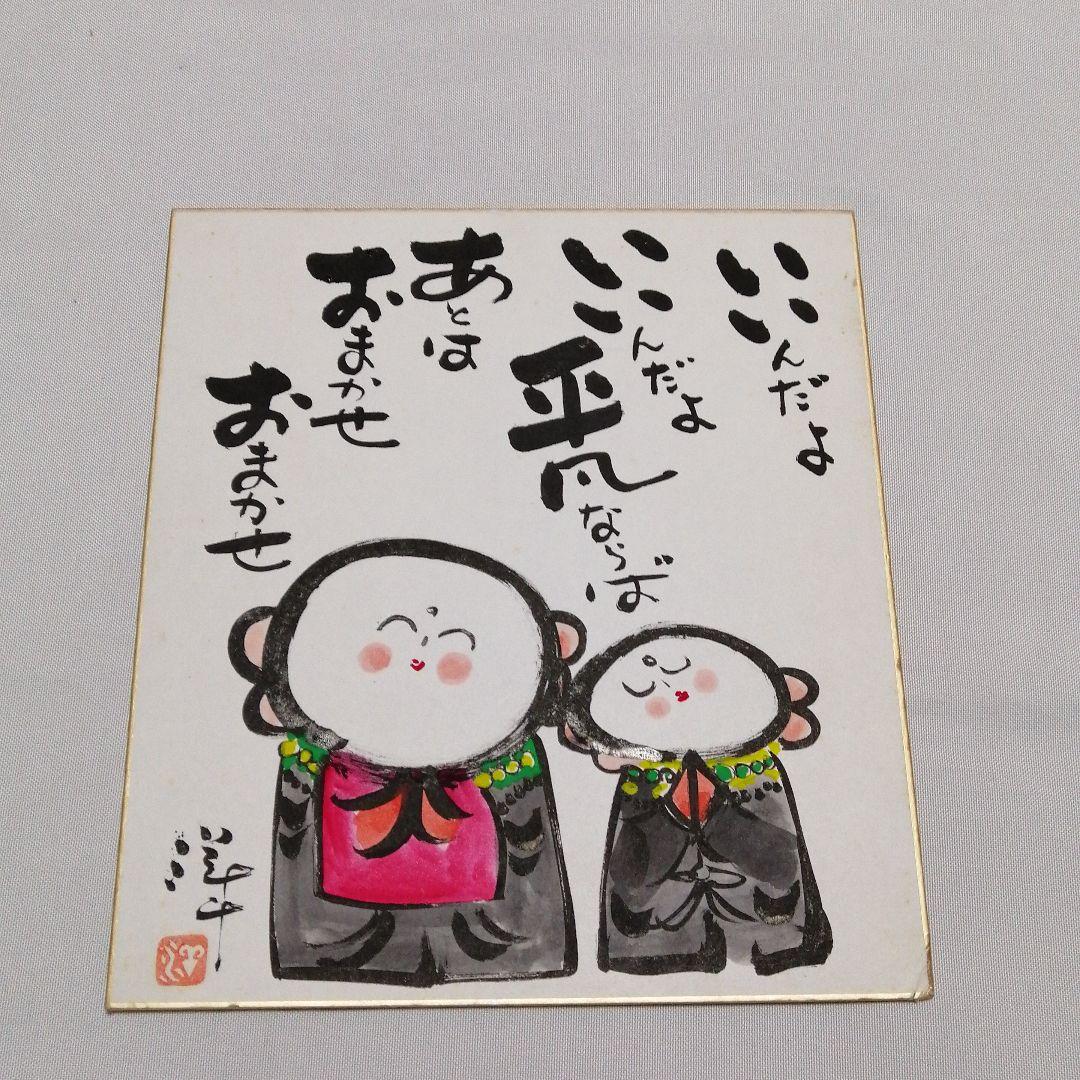 いいんだよ
いいんだよ
平凡ならば
あとは
おまかせ
おまかせ
洋